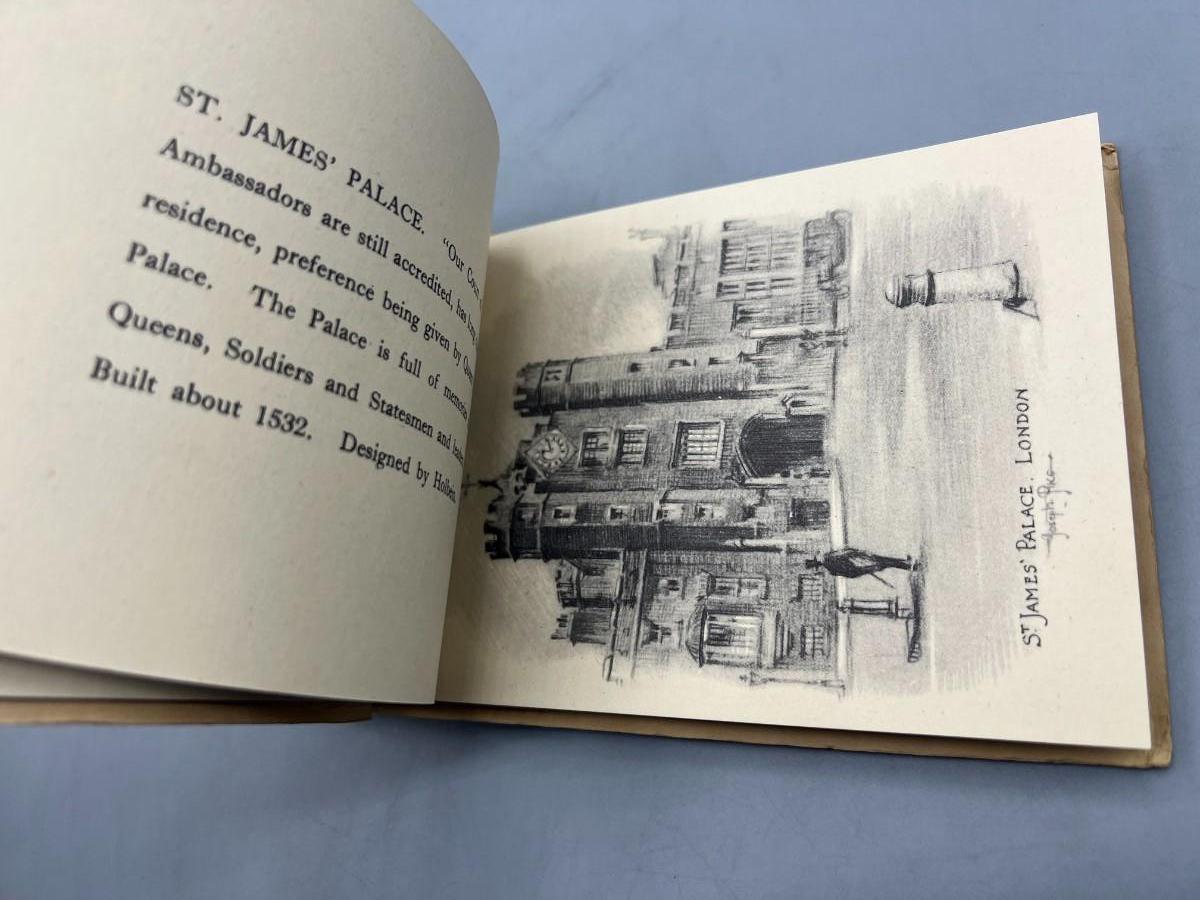 ST. JAMES' PALACE. "Our
Ambassadors are still accredited, has
residence, preference being given by
Palace. The Palace is full of
Queens, Soldiers and Statesmen and
Built about 1532. Designed by Holbein.
ST JAMES' PALACE. LONDON
Joseph Pike